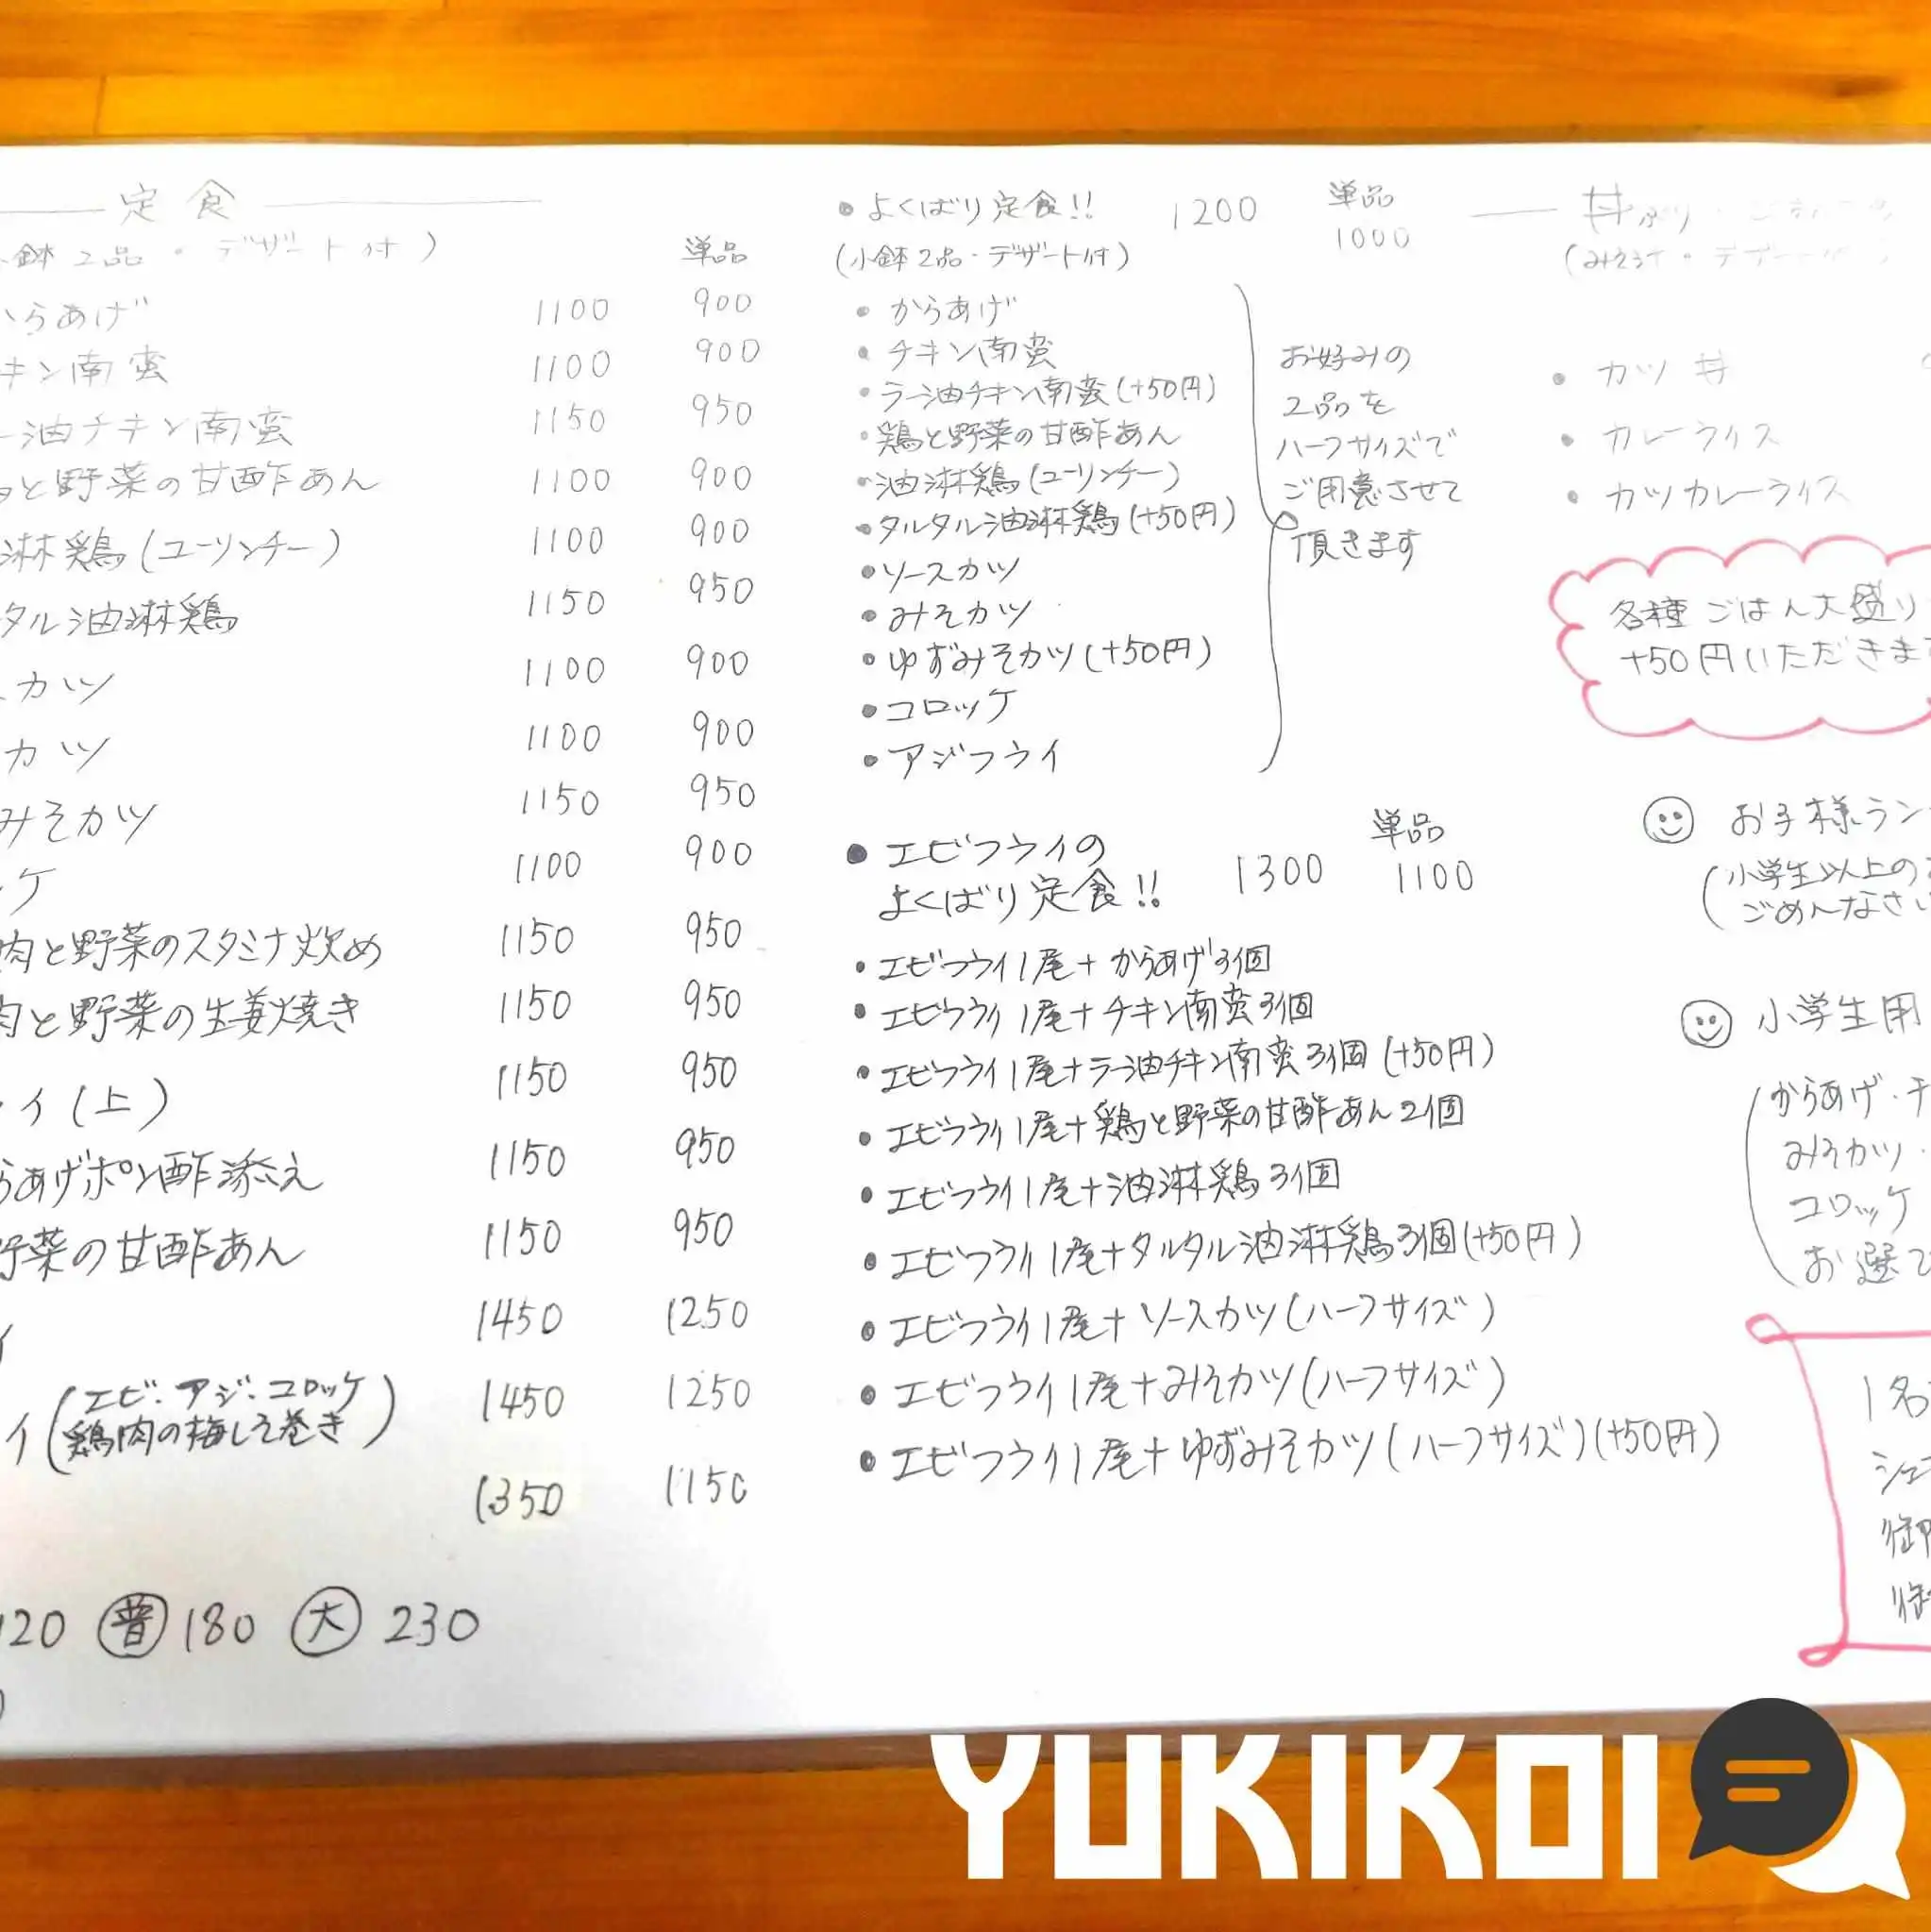 定食
小鉢2品・デザート付)
単品
からあげ 1100 900
チキン南蛮 1100 900
ラー油チキン南蛮 1150 950
と野菜の甘酢あん 1100 900
淋鶏(ユーリンチー) 1100 900
タル油淋鶏 1150 950
カツ 1100 900
カツ 1100 900
みそカツ 1150 950
ケ 1100 900
肉と野菜のスタミナ炒め 1150 950
肉と野菜の生姜焼き 1150 950
イ(上) 1150 950
らあげポン酢添え 1150 950
野菜の甘酢あん 1150 950
イ 1450 1250
イ(エビ・アジ・コロッケ
鶏肉の梅しそ巻き) 1450 1250
1350 1150
120 普 180 大 230
• よくばり定食!! 1200 単品 1000
(小鉢2品・デザート付)
• からあげ
• チキン南蛮
• ラー油チキン南蛮(+50円)
• 鶏と野菜の甘酢あん
• 油淋鶏(ユーリンチー)
• タルタル油淋鶏(+50円)
• ソースカツ
• みそカツ
• ゆずみそカツ(+50円)
• コロッケ
• アジフライ
お好みの
2品を
ハーフサイズで
ご用意させて
頂きます
• エビフライの
よくばり定食!! 1300 単品 1100
• エビフライ1尾+からあげ3個
• エビフライ1尾+チキン南蛮3個
• エビフライ1尾+ラー油チキン南蛮3個(+50円)
• エビフライ1尾+鶏と野菜の甘酢あん2個
• エビフライ1尾+油淋鶏3個
• エビフライ1尾+タルタル油淋鶏3個(+50円)
• エビフライ1尾+ソースカツ(ハーフサイズ)
• エビフライ1尾+みそカツ(ハーフサイズ)
• エビフライ1尾+ゆずみそカツ(ハーフサイズ)(+50円)
丼ぶり
(みそ汁・デザート付)
• カツ丼
• カレーライス
• カツカレーライス
各種ごはん大盛り
+50円いただきます
お子様ラン
(小学生以上のお
ごめんなさい
小学生用
(からあげ・チ
みそカツ・
コロッケ
お選び
1名
シェ
御
YUKIKOI